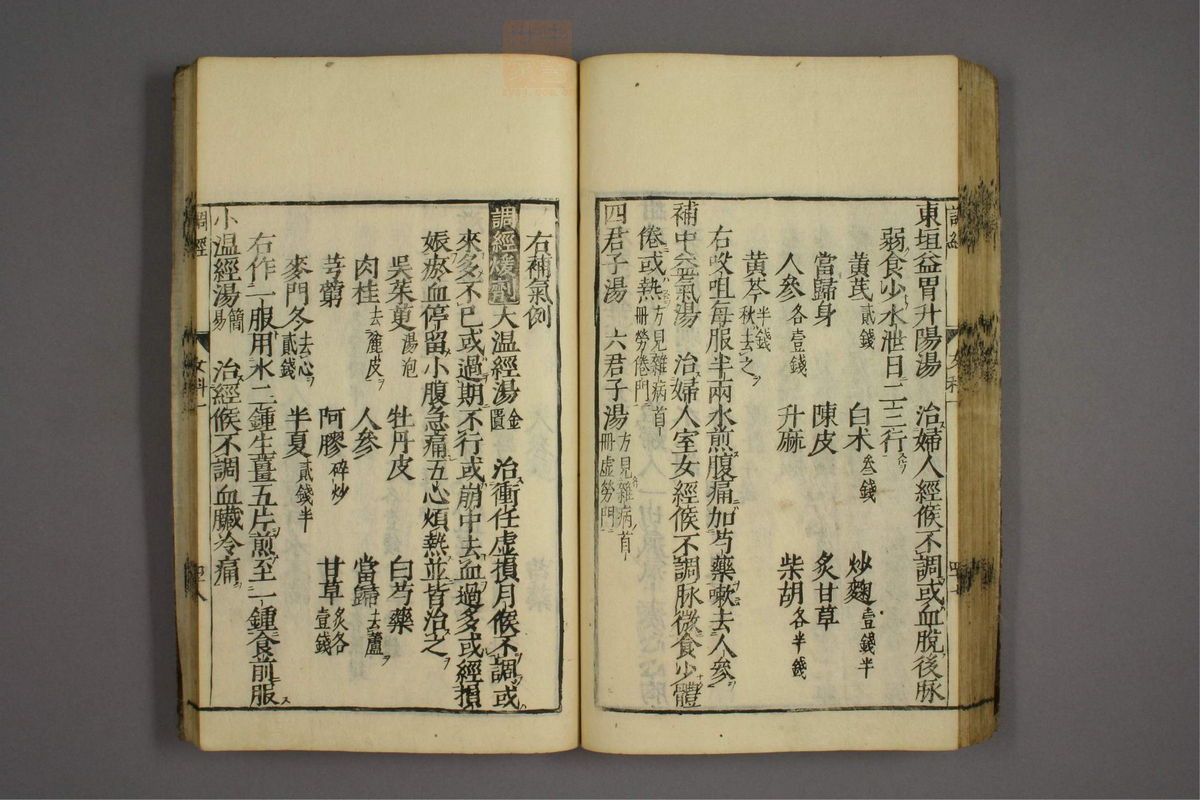 東垣益胃升陽湯　治婦人經候不調或血脫後脉
弱食少水泄日二三行
黄芪貳錢　白术叄錢　炒麹壹錢半
當歸身　陳皮　炙甘草
人參各壹錢　升麻　柴胡各半錢
黄芩半錢秋去之
右㕮咀每服半兩水煎腹痛加芍藥嗽去人參
補中益氣湯　治婦人室女經候不調脉微食少體
倦或熱方見雜病首冊勞倦門
四君子湯　六君子湯方見雜病首冊虛勞門
右補氣例
調經煖劑大温經湯金匱　治衝任虛損月候不調或
來多不已或過期不行或崩中去血過多或經損
娠瘀血停留小腹急痛五心煩熱並皆治之
吳茱萸湯泡　牡丹皮　白芍藥
肉桂去麄皮　人參　當歸去蘆
芎藭　阿膠碎炒　甘草炙各壹錢
麥門冬去心貳錢　半夏貳錢半
右作一服用水二鍾生薑五片煎至一鍾食前服
小温經湯簡易　治經候不調血臟冷痛
調經
女科一